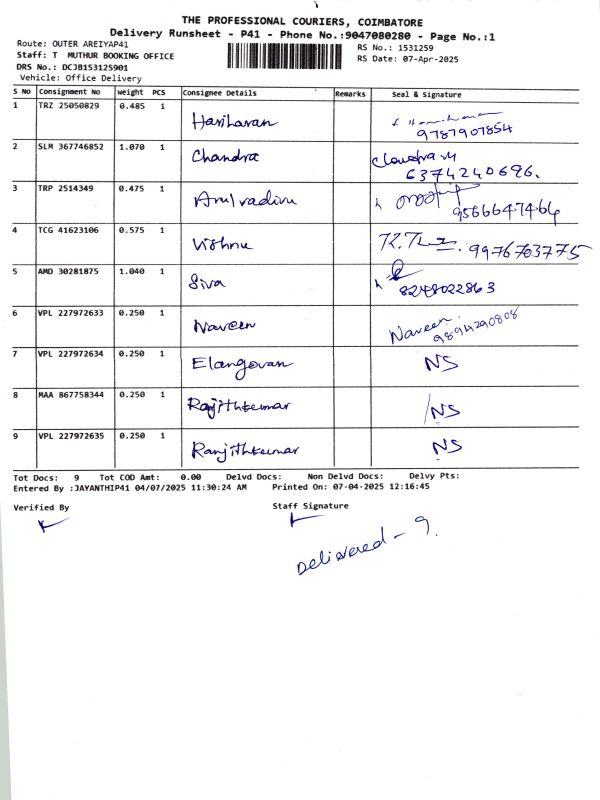 THE PROFESSIONAL COURIERS, COIMBATORE
Delivery Runsheet - P41 - Phone No.:9047080280 - Page No.:1
Route: OUTER AREIYAP41
RS No.: 1531259
Staff: T MUTHUR BOOKING OFFICE
RS Date: 07-Apr-2025
DRS No.: DCJB153125901
Vehicle: Office Delivery
S No Consignment No Weight PCS Consignee Details Remarks Seal & Signature
1 TRZ 25050829 0.485 1 Hariharan
9787907854
2 SLM 367746852 1.070 1 Chandra Chandra M
6374240696.
3 TRP 2514349 0.475 1 Arulvadivu
9566647464
4 TCG 41623106 0.575 1 Vishnu 9976703775
5 AMD 30281875 1.040 1 Siva
8248022863
6 VPL 227972633 0.250 1 Naveen Naveen.
9894290808
7 VPL 227972634 0.250 1 Elangovan NS
8 MAA 867758344 0.250 1 Ranjithkumar NS
9 VPL 227972635 0.250 1 Ranjithkumar NS
Tot Docs: 9 Tot COD Amt: 0.00 Delvd Docs: Non Delvd Docs: Delvy Pts:
Entered By :JAYANTHIP41 04/07/2025 11:30:24 AM Printed On: 07-04-2025 12:16:45
Verified By Staff Signature
Delivered - 9.